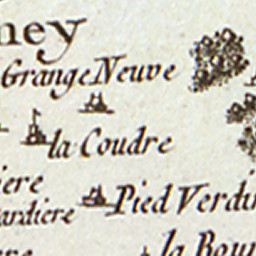 ney
Grange Neuve
la Coudre
iere
Pied Verdi
ardiere
la Bour
ere